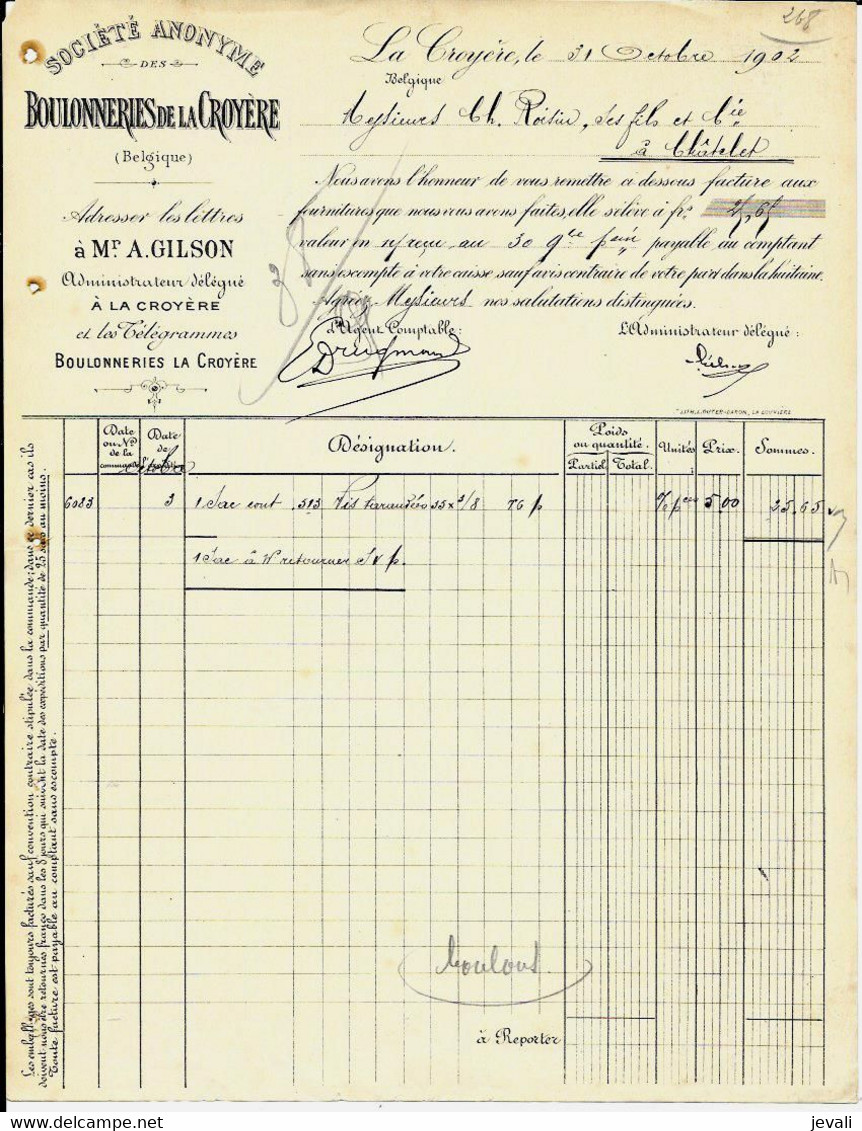 268
SOCIÉTÉ ANONYME
DES
BOULONNERIES DE LA CROYÈRE
(Belgique)
Adresser les lettres
à Mr. A. GILSON
Administrateur délégué
À LA CROYÈRE
et les Télégrammes
BOULONNERIES LA CROYÈRE
La Croyère, le 31 Octobre 1902
Belgique
Messieurs Ch. Roisin, ses fils et Cie
à Châtelet
Nous avons l'honneur de vous remettre ci dessous facture aux
fournitures que nous vous avons faites, elle s'élève à frs 25,65
valeur en n/reçu au 30 9bre payable au comptant
sans escompte à votre caisse sauf avis contraire de votre part dans la huitaine.
Agréez Messieurs nos salutations distinguées.
L'Agent Comptable: L'Administrateur délégué:
Date ou No de la commande Date de l'expédition Désignation. Poids ou quantité. Partiel Total. Unités Prix. Sommes.
octobre
6083 3 1 Sac cont. 513 Vis taraudées 55 x 3/8 TG p % pces 5.00 25.65
1 Sac à n/ retourner S V p.
boulons
à Reporter
Les emballages sont toujours facturés sauf convention contraire stipulée dans la commande; dans ce dernier cas ils
doivent nous être retournés franco dans les 8 jours qui suivent la date des expéditions par quantité de 25 sacs au moins.
Toute facture est payable au comptant sans escompte.
jevali